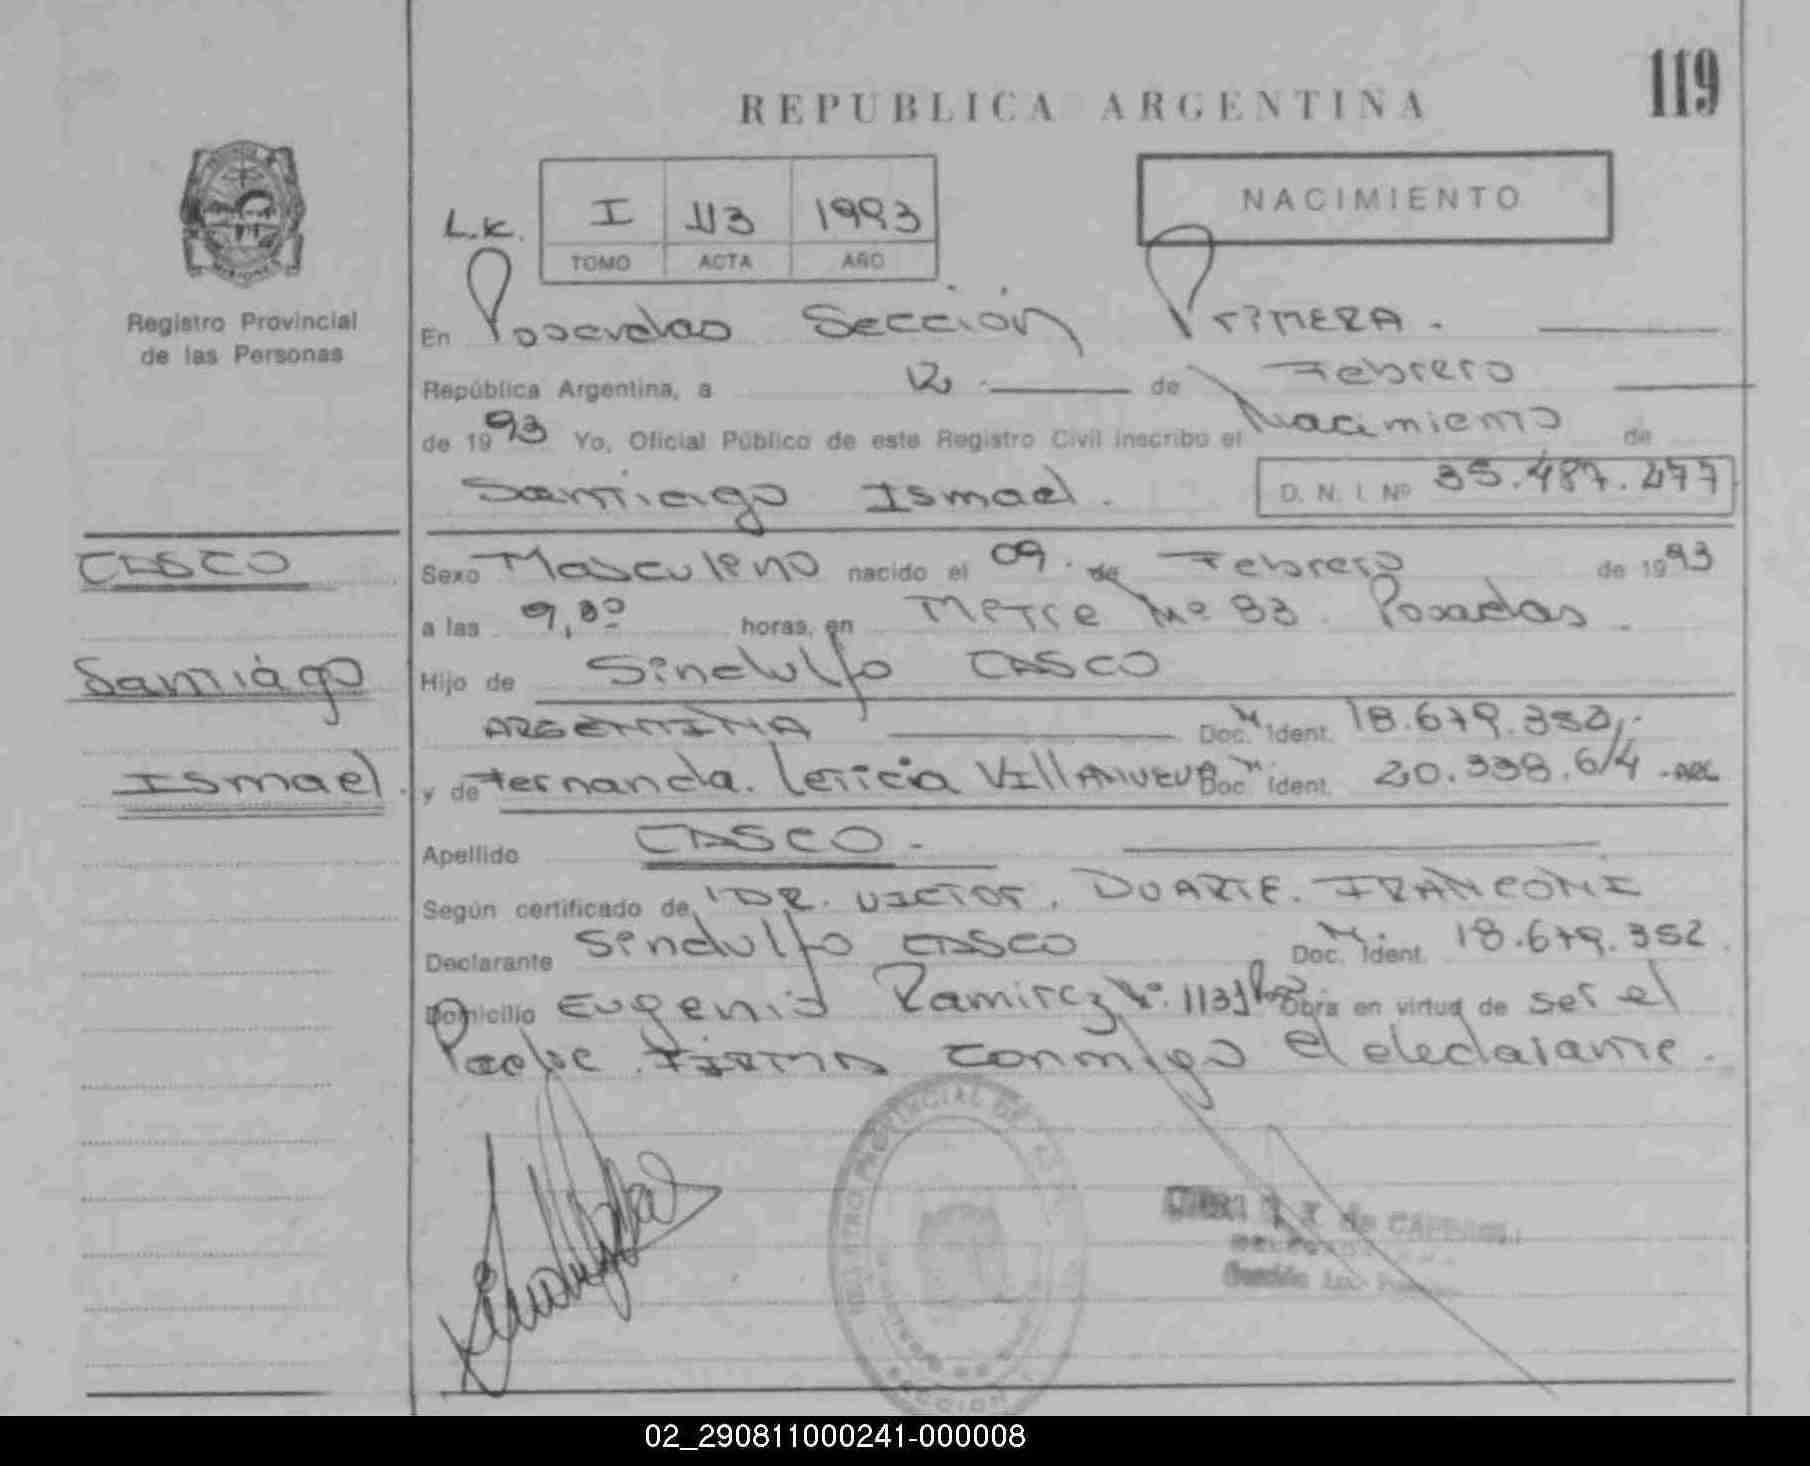 119
REPUBLICA ARGENTINA
NACIMIENTO
L.K. I 113 1993
TOMO ACTA AÑO
Registro Provincial
de las Personas
En Posadas Sección PriMERA.
República Argentina, a 12 de Febrero
de 1993 Yo, Oficial Público de este Registro Civil inscribo el Nacimiento de
Santiago Ismael. D. N. I. Nº 35.487.277
CASCO
Santiago
Ismael.
Sexo Masculino nacido el 09. de Febrero de 1993
a las 9,30 horas, en Mitre Nº 93. Posadas.
Hijo de Sindulfo CASCO
ARGENTINA Doc. Ident. 18.679.352
y de Fernanda. Leticia VillANUEVA Doc. Ident. 20.338.614 -ARG
Apellido CASCO.
Según certificado de DR. VICTOR. DUARTE. FRANCONI
Declarante Sindulfo CASCO Doc. M. Ident. 18.679.352
Domicilio Eugenio Ramirez Nº. 1131 Obra en virtud de ser el
Padre. FIRMA conmigo el declarante.
REGISTRO PROVINCIAL DE LAS
de CAFFARO
Sección
SECCION 1
02_290811000241-000008